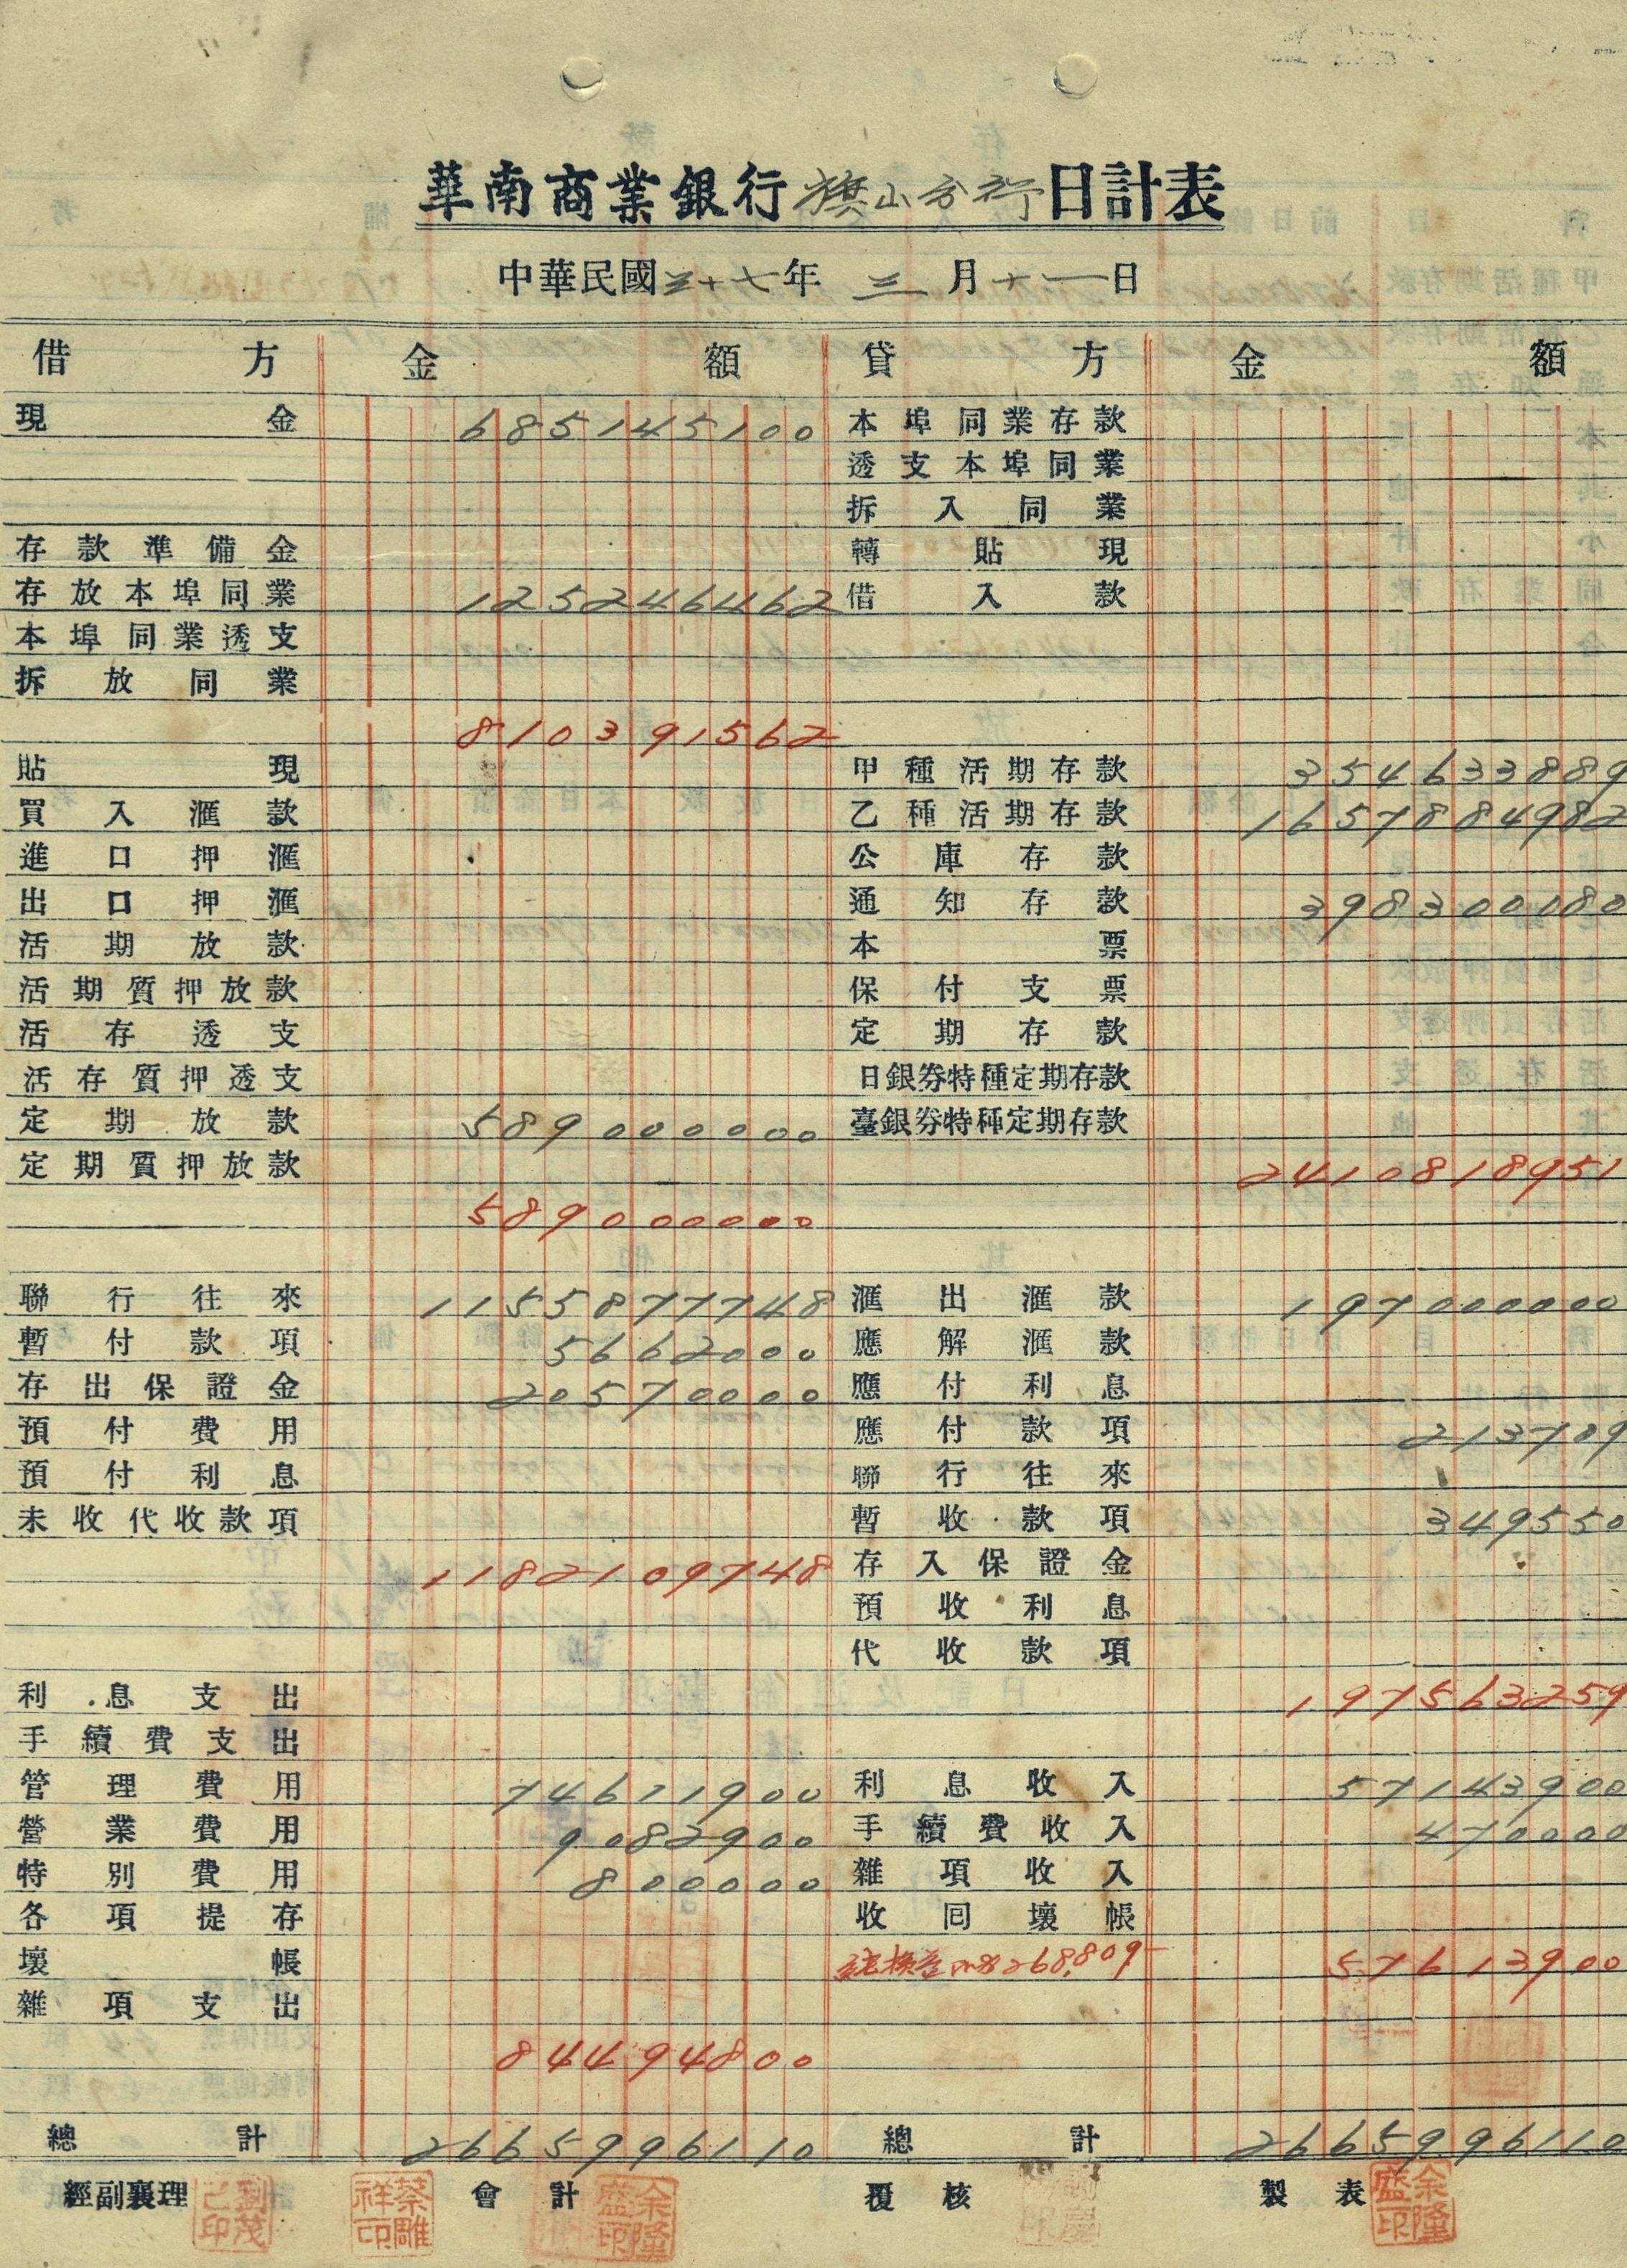 華南商業銀行旗山分行日計表
中華民國三十七年 三月十一日
借方 金額 貸方 金額
現金 685145100 本埠同業存款
透支本埠同業
拆入同業
存款準備金 轉貼現
存放本埠同業 125246462 借入款
本埠同業透支
拆放同業
810391562
貼現 甲種活期存款 354633889
買入滙款 乙種活期存款 1657884982
進口押滙 公庫存款
出口押滙 通知存款 398300080
活期放款 本票
活期質押放款 保付支票
活存透支 定期存款
活存質押透支 日銀券特種定期存款
定期放款 589000000 臺銀券特種定期存款
定期質押放款 2410818951
589000000
聯行往來 1155877748 滙出滙款 197000000
暫付款項 5662000 應解滙款
存出保證金 20570000 應付利息
預付費用 應付款項 213709
預付利息 聯行往來
未收代收款項 暫收款項 349550
1182109748 存入保證金
預收利息
代收款項
利息支出 197563259
手續費支出
管理費用 74611900 利息收入 57143900
營業費用 9082900 手續費收入 470000
特別費用 800000 雜項收入
各項提存 收回壞帳
壞帳 268,809 57613900
雜項支出
84494800
總計 2665996110 總計 2665996110
經副襄理 劉茂己印 蔡雕祥印 會計 余隆盛印 覆核 製表 余隆盛印